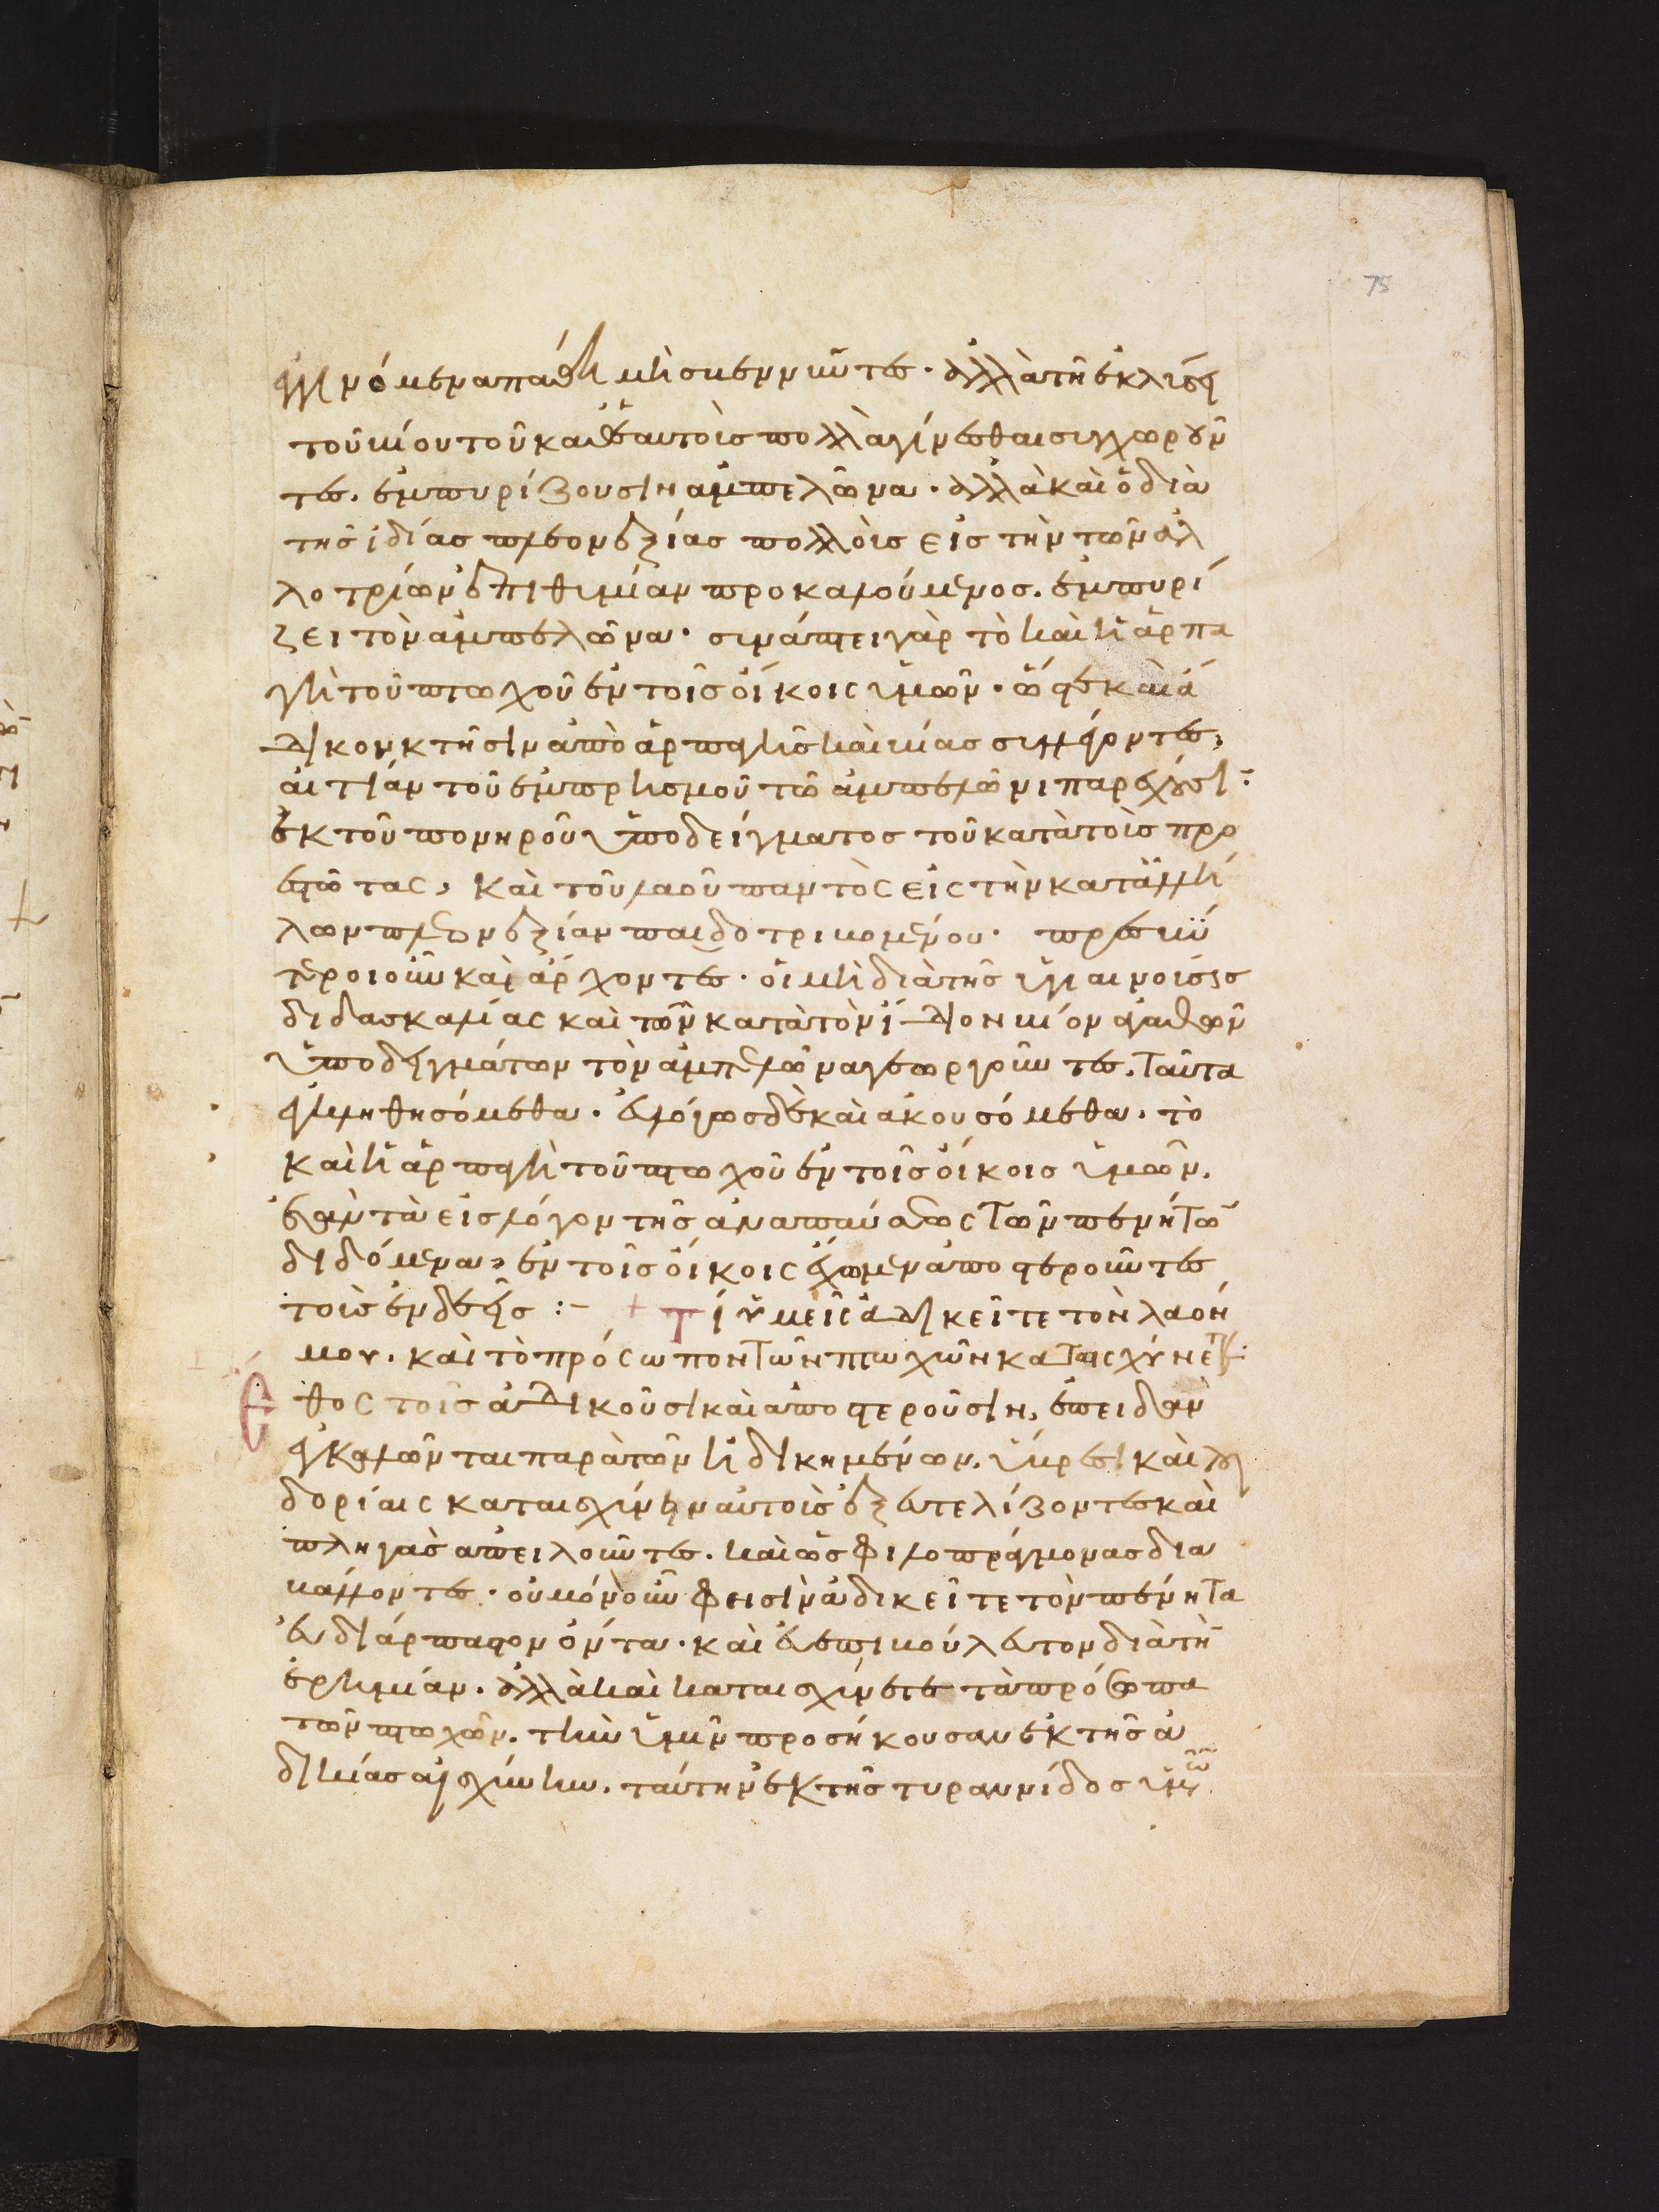 75
γινόμενα πάθη μὴ σβεννῦντες. ἀλλὰ τῆ ἐκλύσει
τοῦ βίου τοῦ καθ' ἑαυτοὺς πολλὰ γίνεσθαι συγχωροῦν
τες. ἐμπυρίζουσιν ἀμπελῶνα. ἀλλὰ καὶ ὁ διὰ
τῆς ἰδίας πλεονεξίας πολλοὺς εἰς τὴν τῶν ἀλ
λοτρίων ἐπιθυμίαν προκαλούμενος. ἐμπυρί
ζει τὸν ἀμπελῶνα. συνάπτει γὰρ τὸ καὶ ἡ ἁρπα
γὴ τοῦ πτωχοῦ ἐν τοῖς οἴκοις ὑμῶν. ὥστε καὶ ἄ
δικον κτῆσιν ἀπὸ ἁρπαγῆς καὶ βίας συλλέγοντες,
αἰτίαν τοῦ ἐμπρησμοῦ τῶ ἀμπελῶνι παρέχουσι.
ἐκ τοῦ πονηροῦ ὑποδείγματος τοῦ κατὰ τοὺς προ
εστῶτας, καὶ τοῦ λαοῦ παντὸς εἰς τὴν κατ' ἀλλή
λων πλεονεξίαν παιδοτριβομένου. πρεσβύ
τεροι οὖν καὶ ἄρχοντες. οἱ μὴ διὰ τῆς ὑγιαινούσης
διδασκαλίας καὶ τῶν κατὰ τὸν ἴδιον βίον ἀγαθῶν
ὑποδειγμάτων τὸν ἀμπελῶνα γεωργοῦντες. ταῦτα
ἐγκληθησόμεθα. εὐλόγως δὲ καὶ ἀκουσόμεθα. τὸ
καὶ ἡ ἁρπαγὴ τοῦ πτωχοῦ ἐν τοῖς οἴκοις ὑμῶν.
ἐὰν τὰ εἰς λόγον τῆς ἀναπαύσεως τῶν πενήτων
διδόμενα, ἐν τοῖς οἴκοις ἔχωμεν ἀποστεροῦντες
τοὺς ἐνδεεῖς :– + Τί ὑμεῖς ἀδικεῖτε τὸν λαόν
μου. καὶ τὸ πρόσωπον τῶν πτωχῶν καταισχύνετε:
Ἔθος τοῖς ἀδικοῦσι καὶ ἀποστεροῦσιν, ἐπειδὰν
ἐγκαλῶνται παρὰ τῶν ἠδικημένων. ὕβρεσι καὶ λοι
δορίαις καταισχύνειν αὐτοὺς ἐξευτελίζοντες καὶ
πληγὰς ἀπειλοῦντες. καὶ ὡς φιλοπράγμονας δια
βάλλοντες. οὐ μόνον οὖν φησιν ἀδικεῖτε τὸν πένητα
εὐδιάρπαστον ὄντα. καὶ εὐεπιβούλευτον διὰ τὴν
ἐρημίαν. ἀλλὰ καὶ καταισχύνετε τὰ πρόσωπα
τῶν πτωχῶν. τὴν ὑμῖν προσήκουσαν ἐκ τῆς ἀ
δικίας αἰσχύνην. ταύτην ἐκ τῆς τυραννίδος ὑμῶν